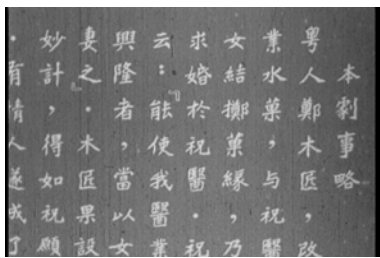 本劇事略
粤人鄭木匠，改
業水菓，与祝醫
女結擲菓緣，乃
求婚於祝醫．祝
云：「能使我醫業
興隆者，當以女
妻之」．木匠果設
妙計，得如祝願
．有情人遂成了